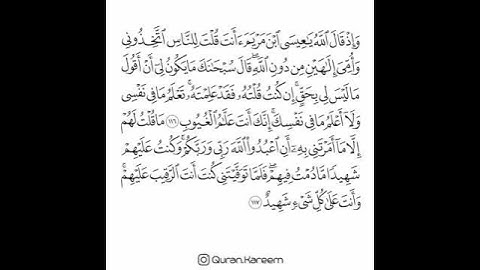 وَإِذْ قَالَ ٱللَّهُ يَـٰعِيسَى ٱبْنَ مَرْيَمَ ءَأَنتَ قُلْتَ لِلنَّاسِ ٱتَّخِذُونِى
وَأُمِّىَ إِلَـٰهَيْنِ مِن دُونِ ٱللَّهِ ۖ قَالَ سُبْحَـٰنَكَ مَا يَكُونُ لِىٓ أَنْ أَقُولَ
مَا لَيْسَ لِى بِحَقٍّ ۚ إِن كُنتُ قُلْتُهُۥ فَقَدْ عَلِمْتَهُۥ ۚ تَعْلَمُ مَا فِى نَفْسِى
وَلَآ أَعْلَمُ مَا فِى نَفْسِكَ ۚ إِنَّكَ أَنتَ عَلَّـٰمُ ٱلْغُيُوبِ ١١٦ مَا قُلْتُ لَهُمْ
إِلَّا مَآ أَمَرْتَنِى بِهِۦٓ أَنِ ٱعْبُدُوا۟ ٱللَّهَ رَبِّى وَرَبَّكُمْ ۚ وَكُنتُ عَلَيْهِمْ
شَهِيدًا مَّا دُمْتُ فِيهِمْ ۖ فَلَمَّا تَوَفَّيْتَنِى كُنتَ أَنتَ ٱلرَّقِيبَ عَلَيْهِمْ ۚ
وَأَنتَ عَلَىٰ كُلِّ شَىْءٍ شَهِيدٌ ١١٧
Quran.Kareem